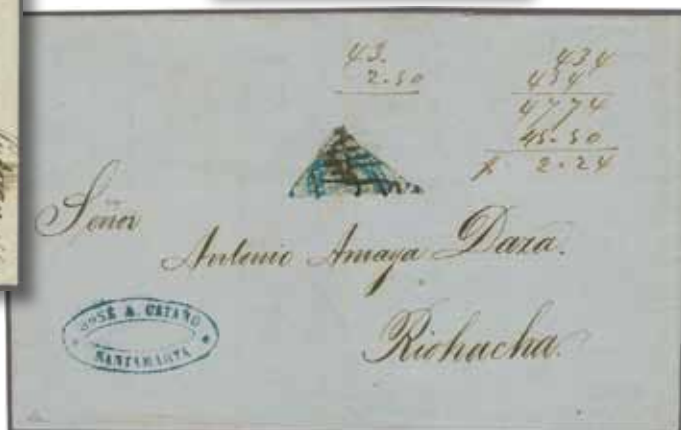 43.
2.50
434
434
4774
45.50
2.24
Señor
Antonio Amaya Daza.
Riohacha.
JOSÉ A. CATAÑO
SANTAMARTA